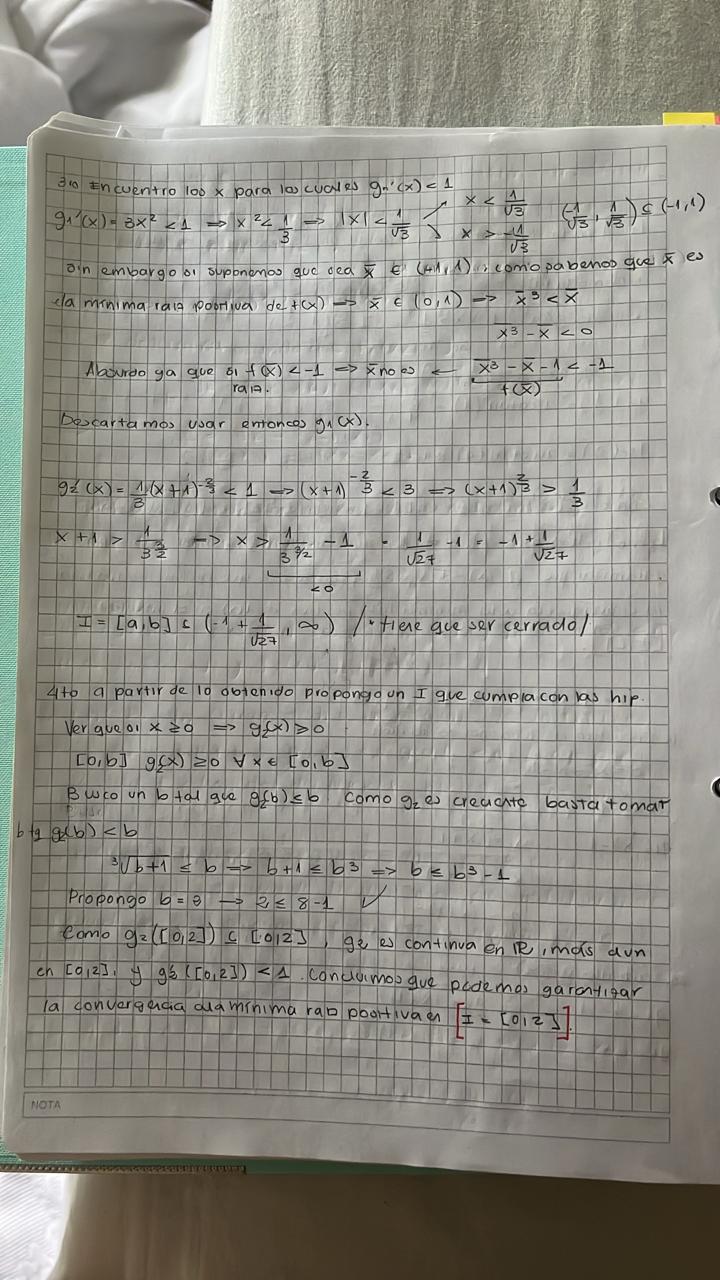 3ro Encuentro los x para los cuales g₁'(x) < 1
g₁'(x) = 3x² < 1 ⟹ x² < 1/3 ⟹ |x| < 1/√3 ↗ x < 1/√3 ↘ x > -1/√3 (-1/√3, 1/√3) ⊆ (-1,1)
Sin embargo si suponemos que sea x̄ ∈ (-1,1), como sabemos que x̄ es
la mínima raíz positiva de f(x) → x̄ ∈ (0,1) → x̄³ < x̄
x̄³ - x̄ < 0
Absurdo ya que si f(x̄) < -1 ⟹ x̄ no es raíz. ← x̄³ - x̄ - 1 < -1
f(x̄)
Descartamos usar entonces g₁(x).
g₂'(x) = 1/3 (x+1)^(-2/3) < 1 ⟹ (x+1)^(-2/3) < 3 ⟹ (x+1)^(2/3) > 1/3
x+1 > 1/3^(3/2) → x > 1/3^(3/2) - 1 = 1/√27 - 1 = -1 + 1/√27
<0
I = [a,b] ⊆ (-1 + 1/√27, ∞) /· tiene que ser cerrado/
4to a partir de lo obtenido propongo un I que cumpla con las hip.
Ver que si x ≥ 0 ⟹ g₂(x) ≥ 0
[0,b] g₂(x) ≥ 0 ∀ x ∈ [0,b]
Busco un b tal que g₂(b) ≤ b como g₂ es creciente basta tomar
b tq g₂(b) < b
³√(b+1) ≤ b ⟹ b+1 ≤ b³ ⟹ b ≤ b³ - 1
Propongo b = 8 → 2 ≤ 8 - 1 ✓
Como g₂([0,2]) ⊆ [0,2], g₂ es continua en ℝ, más aun
en [0,2], y g₂'([0,2]) < 1. Concluimos que podemos garantizar
la convergencia a la mínima raíz positiva en [I = [0,2]].
NOTA